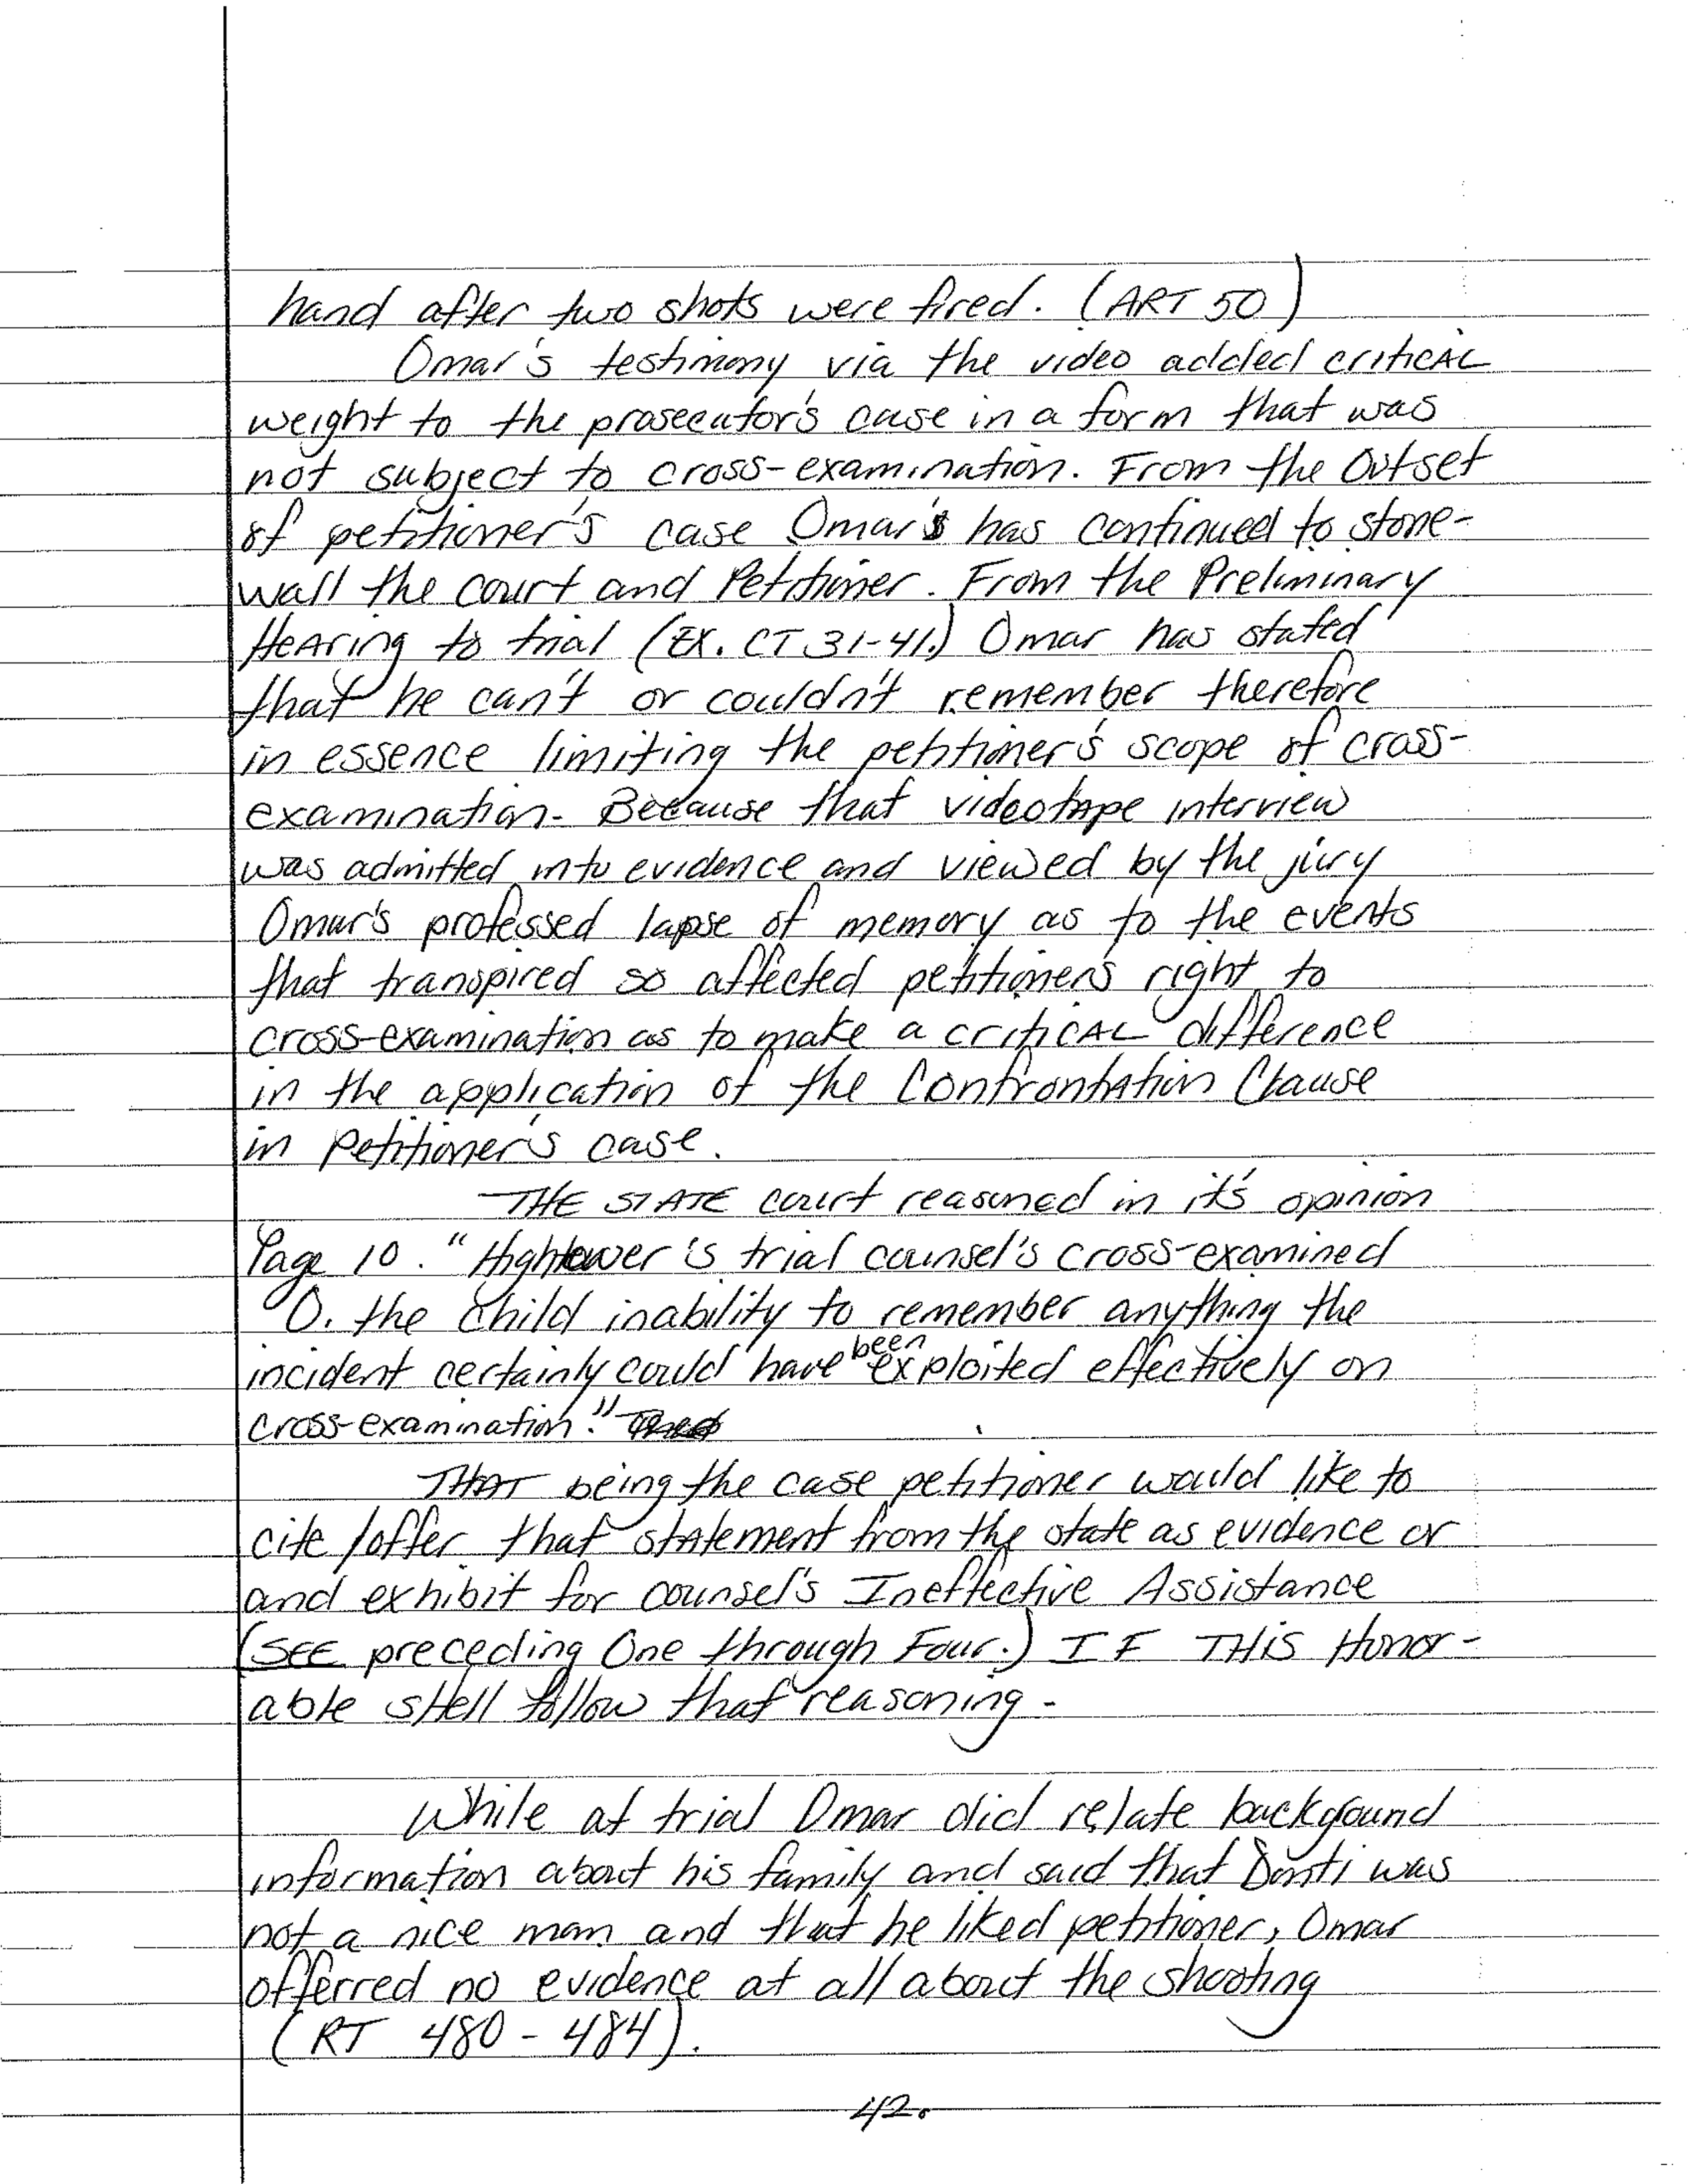 hand after two shots were fired. (ART 50)
Omar's testimony via the video added critiCAL
weight to the prosecutor's case in a form that was
not subject to cross-examination. From the Outset
of petitioner's case Omar's has continued to stone-
wall the court and Petitioner. From the Preliminary
HeAring to trial (EX. CT 31-41.) Omar has stated
that he can't or couldn't remember therefore
in essence limiting the petitioner's scope of cross-
examination. Because that videotApe interview
was admitted into evidence and viewed by the jury
Omar's professed lapse of memory as to the events
that transpired so affected petitioner's right to
cross-examination as to make a critiCAL difference
in the application of the ConfrontAtion Clause
in Petitioner's case.
THE STATE court reasoned in it's opinion
Page 10. "Hightower's trial counsel's cross-examined
O. the child inability to remember anything the
incident certainly could have been exploited effectively on
cross-examination."
THAT being the case petitioner would like to
cite/offer that stAtement from the state as evidence or
and exhibit for counsel's Ineffective Assistance
(SEE preceding One through Four.) IF THIS Honor-
able sHell follow that reasoning.
While at trial Omar did relate backgound
information about his family and said that Dosti was
not a nice man and that he liked petitioner, Omar
offerred no evidence at all about the shooting
(RT 480-484).
42.